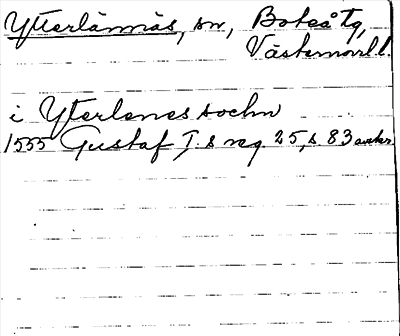 Ytterlännäs, sn, Boteå tg,
Västernorrl.l.
i Yterlenes sochn
1555 Gustaf I.s reg. 25, s. 83